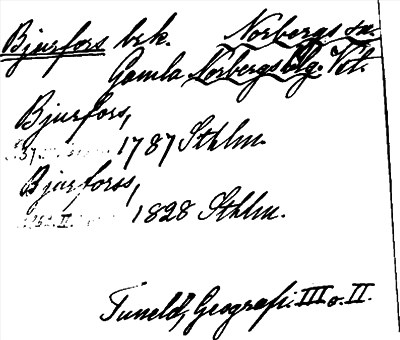 Bjurfors brk. Norbergs sn.
Gamla Norbergs blg. Vtl.
Bjurfors,
1787 Sthlm.
Bjurforss,
1828 Sthlm.
Tuneld, Geografi. III o. II.